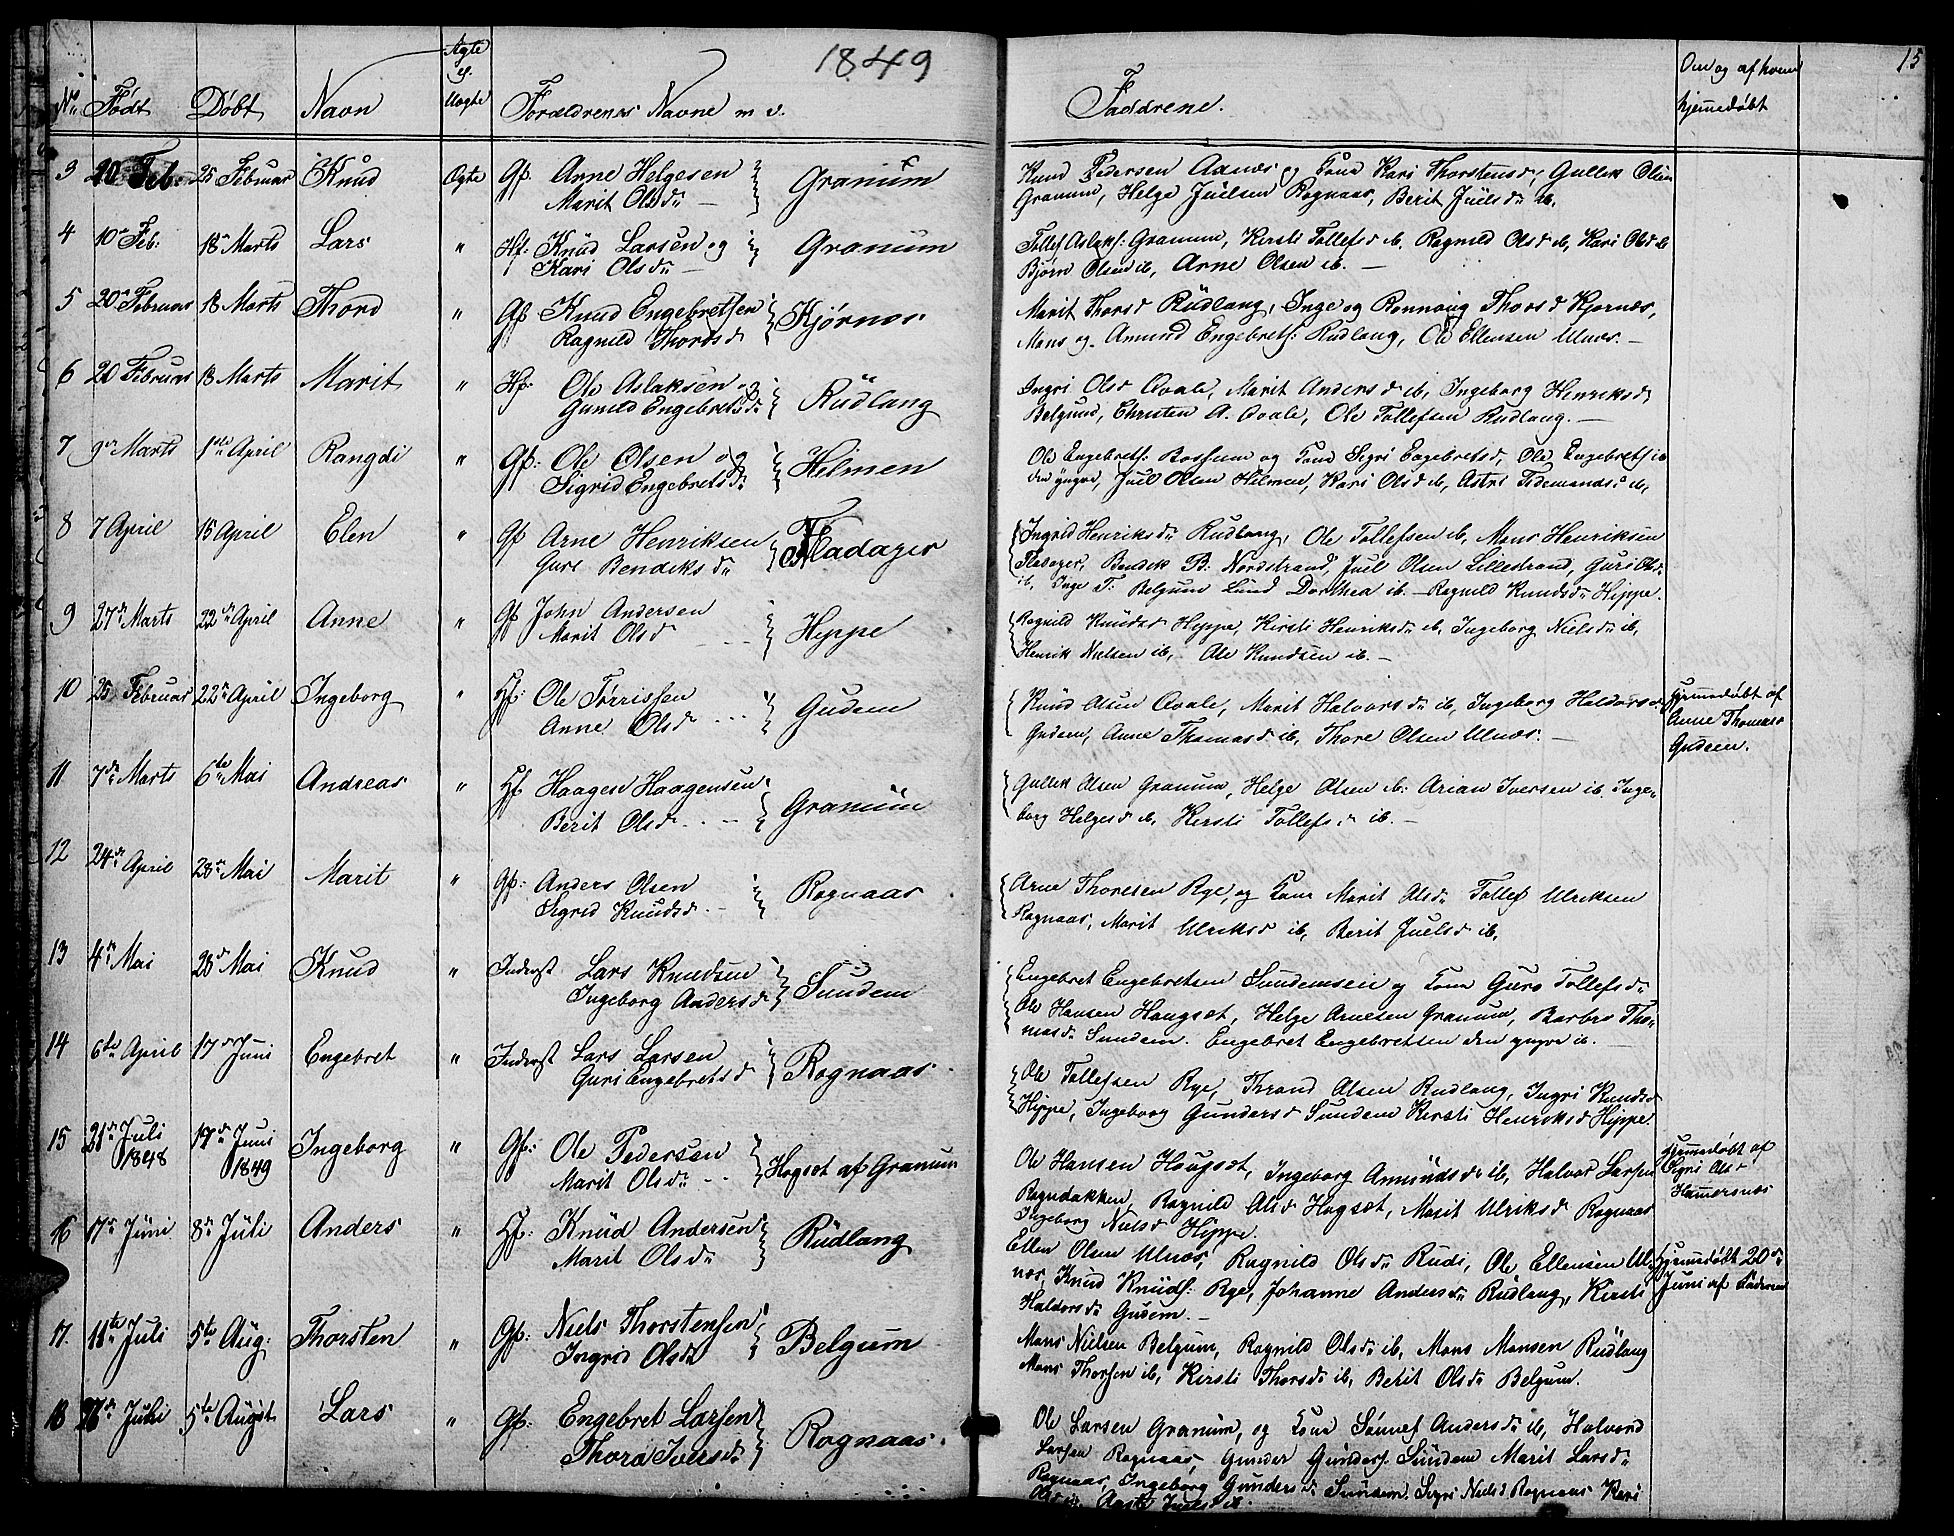 1849
15
No Født Døbt Navn Ægte el. Uægte Forældrenes Navne m. v. Faddrene. Om og af hvem hjemmedøbt
3 20 Feb. 25 Februar Knud Ægte Gf. Arne Helgesen Granum
Marit Olsdr
Knud Pedersen Aanæs og Kona Kari Thorstensd, Gullik Olsen
Granum, Helge Juilsen Rognaas, Berit Juilsdr ib.
4 10de Feb: 18 Marts Lars " Hf: Knud Larsen og Granum
Kari Olsdr
Tollef Aslaks: Granum, Kirsti Tollefsd ib, Ragnild Olsd ib, Kari Olsd ib
Bjørn Olsen ib, Arne Olsen ib.
5 20de Februar 18 Marts Thord " Gf Knud Engebretsen Kjørnæs
Ragnild Thordsd
Marit Thorsd Rudlang, Inge og Rønnaug Thorsd Kjørnæs,
Mons og Amund Engebrets: Rudlang, Ole Ellensen Ulnæs.
6 20 Februar 18 Marts Marit " Hf: Ole Aslaksen og Rudlang
Gunild Engebretsdr
Ingri Olsd Qvale, Marit Andersd ib, Ingeborg Henriksd,
Belgund, Christen A. Qvale, Ole Tollefsen Rudlang.
7 9de Marts 1ste April Rangdi " Gf: Ole Olsen og Helmen
Sigrid Engebretsdr
Ole Engebrets: Bossum og Kona Sigri Engebretsd, Ole Engebrets ib
den yngre, Juil Olsen Hilmen, Kari Olsd ib, Astri Tidemandsd ib,
8 7 April 15 April Elen " Gf Arne Henriksen Fladager
Guri Bendiksdr
Ingrid Henriksdr Rudlang, Ole Tollefsen ib, Mons Henriksen
Fladager, Bendik B. Nordstrand, Juil Olsen Lillestrand, Guri Olsdr
ib, Inge T. Belgum Lund Dorthea ib. Ragnild Knudsdr Hippe.
9 27de Marts 22de April Anne " Gf John Andersen Hippe
Marit Olsd
Ragnild Knudsd Hippe, Kirsti Henriksdr ib, Ingeborg Nielsdr ib,
Henrik Nielsen ib, Ole Knudsen ib.
10 25 Februar 22de April Ingeborg " Hf: Ole Tørrissen Gudem
Anne Olsd
Knud Olsen Qvale, Marit Halvorsdr ib, Ingeborg Haldorsd
Gudem, Anne Thomasd ib, Thore Olsen Ulnæs.
Hjemmedøbt af
Anne Thomasd
Gudem.
11 7de Marts 6te Mai Andreas " Hf Haagen Haagensen Granum
Berit Olsd
Gullik Olsen Granum, Helge Olsen ib: Arian Iversen ib. Inge-
borg Helgesd ib, Kirsti Tollefsd ib.
12 24de April 28de Mai Marit " Gf: Anders Olsen Rognaas
Sigrid Knudsd
Arne Thoresen Rye, og Kona Marit Olsdr Tollef Ulriksen
Rognaas, Marit Ulriksd ib, Berit Juelsd ib,
13 4de Mai 28d Mai Knud " Inderst Lars Knudsen Sundem
Ingeborg Andersd
Engebret Engebretsen Sundemseie og Kona Guro Tollefsdr
Ole Hansen Haugset, Helge Arnesen Granum, Barbro Tho-
masdr Sundem. Engebret Engebretsen den yngre ib.
14 6te April 17de Juni Engebret " Inderst Lars Larsen Rognaas
Guri Engebretsd
Ole Tollefsen Rye, Thrand Olsen Rudlang, Ingri Knudsd
Hippe, Ingeborg Gundersd Sundem Kirsti Henriksd Hippe.
15 21de Juli 1848 17de Juni 1849 Ingeborg " Gf: Ole Pedersen Hogset af Granum
Marit Olsdr
Ole Hansen Haugset, Ingeborg Amundsdr ib, Halvor Larsen
Rogndokken, Ragnild Olsd Hogset, Marit Ulriksd Rognaas
Ingeborg Nielsd Hippe.
Hjemmedøbt af
Sigri Olsd
Hamersnæs
16 17de Juni 8de Juli Anders " Hf: Knud Andersen Rudlang
Marit Olsdr
Ellen Olsen Ulnæs, Ragnild Olsdr Rudi, Ole Ellensen Ul-
næs, Knud Knuds: Rye, Johanne Andersdr Rudlang, Kirsti
Haldorsdr Gudem.
Hjemmedøbt 20de
Juni af Faderen
17. 11te Juli 5te Aug: Thorsten " Gf: Niels Thorstensen Belgum
Ingrid Olsdr
Mons Nielsen Belgum, Ragnild Olsdr ib, Mons Monsen Rudlang
Mons Thorsen ib, Kirsti Thorsdr ib, Berit Olsdr Belgum.
18 26de Juli 5te August Lars " Gf: Engebret Larsen Rognaas.
Thora Iversdr
Ole Larsen Granum, og Kona Sønnef Andersdr ib, Halvord
Larsen Rognaas, Gunder Gunders: Sundem Marit Larsdr
Rognaas, Ingeborg Gundersdr Sundem. Sigri Nielsd Rognaas Kari